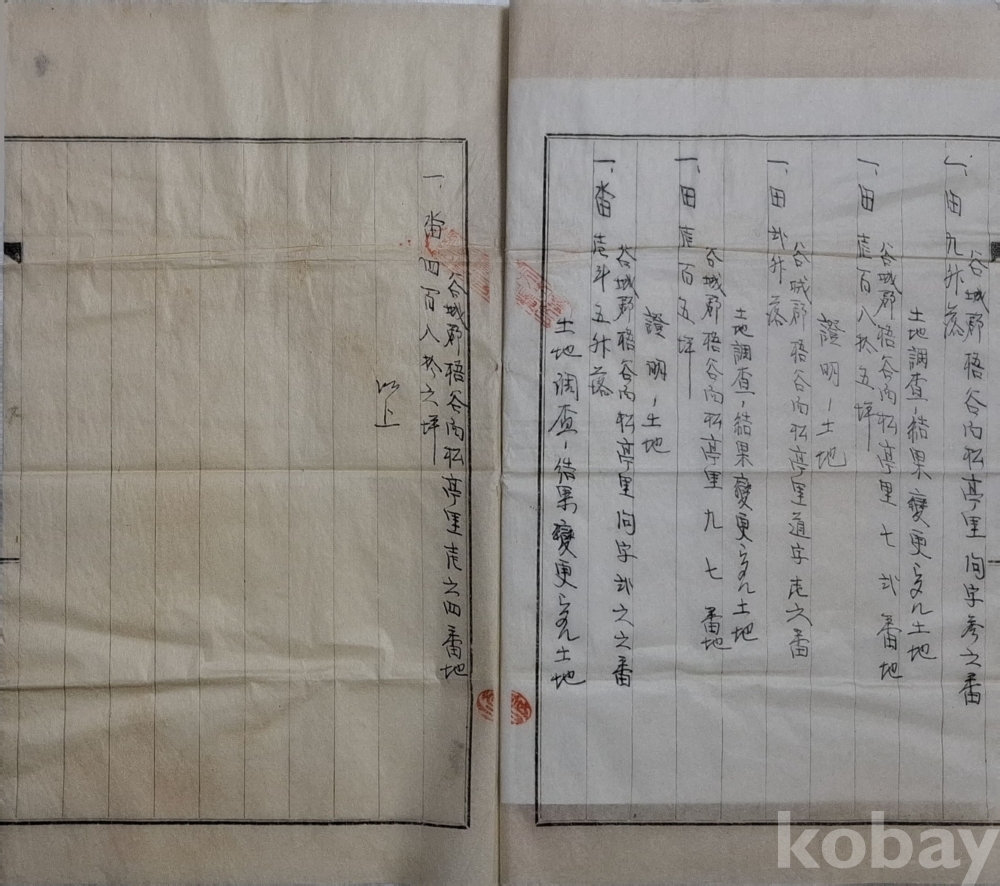 谷城郡梧谷面松亭里 問字参六番
一、田 九升落
土地調査ノ結果變更シタル土地
谷城郡梧谷面松亭里 七弐番地
一、田 壱百八拾五坪
證明ノ土地
谷城郡梧谷面松亭里道字壱六番
一、田 弐升落
土地調査ノ結果變更シタル土地
谷城郡梧谷面松亭里 九七番地
一、田 壱百五坪
證明ノ土地
谷城郡梧谷面松亭里 問字弐六六番
一、畓 壱斗五升落
土地調査ノ結果變更シタル土地
谷城郡梧谷面松亭里壱六四番地
一、畓 四百八拾六坪
以上
kobay